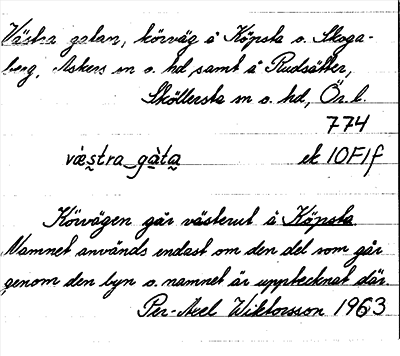 Västra gatan, körväg å Köpsta o. Skoga-
berg, Askers sn o. hd samt å Rudsätter,
Sköllersta sn o. hd, Ör. l.
774
væstra gàta ek 10F1f
Körvägen går västerut å Köpsta
Namnet används endast om den del som går
genom den byn o. namnet är upptecknat där.
Per-Axel Wiktorsson 1963